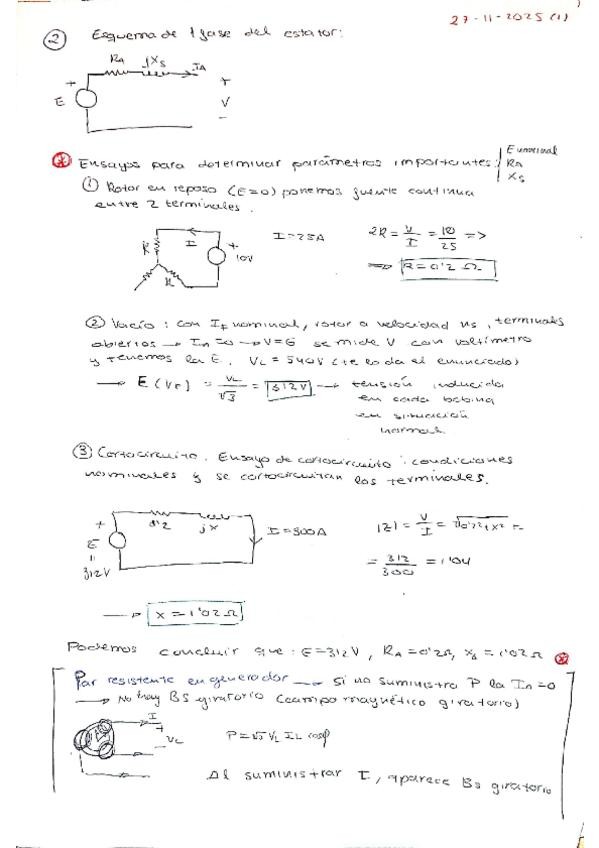 27-11-2025 (1)
② Esquema de 1 fase del estator:
RA jXs IA
+ +
E V
-
Ensayos para determinar parámetros importantes: E nominal
RA
Xs
① Rotor en reposo (E=0) ponemos fuente continua
entre 2 terminales.
I = 25A 2R = V/I = 10/25 =>
R I + 10V
R
=> R = 0'2 Ω
② Vacío: con IF nominal, rotor a velocidad ns, terminales
abiertos → In=0 → V=E se mide V con voltímetro
y tenemos la E. VL = 540V (te lo da el enunciado)
→ E (VF) = VL/√3 = 312V → tensión inducida
en cada bobina
en situación
normal.
③ Cortocircuito. Ensayo de cortocircuito: condiciones
nominales y se cortocircuitan los terminales.
+ 0'2 jX I = 300A |Z| = V/I = √0'2²+X² =
E
=
312V
= 312/300 = 1'04
→ X = 1'02 Ω
Podemos concluir que: E=312V, RA=0'2Ω, Xs=1'02Ω
Par resistente en generador → si no suministro P la In=0
→ No hay BS giratorio (campo magnético giratorio)
I
+
VL P=√3 VL IL cosφ
-
Al suministrar I, aparece Bs giratorio